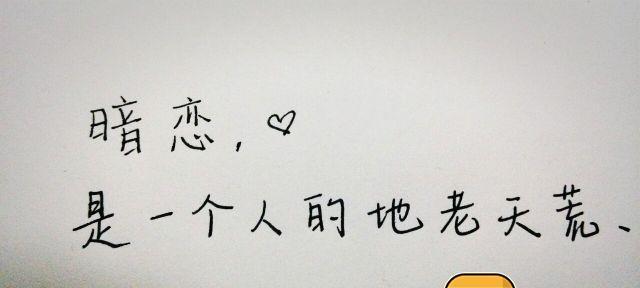 暗恋,♡
是一个人的地老天荒、